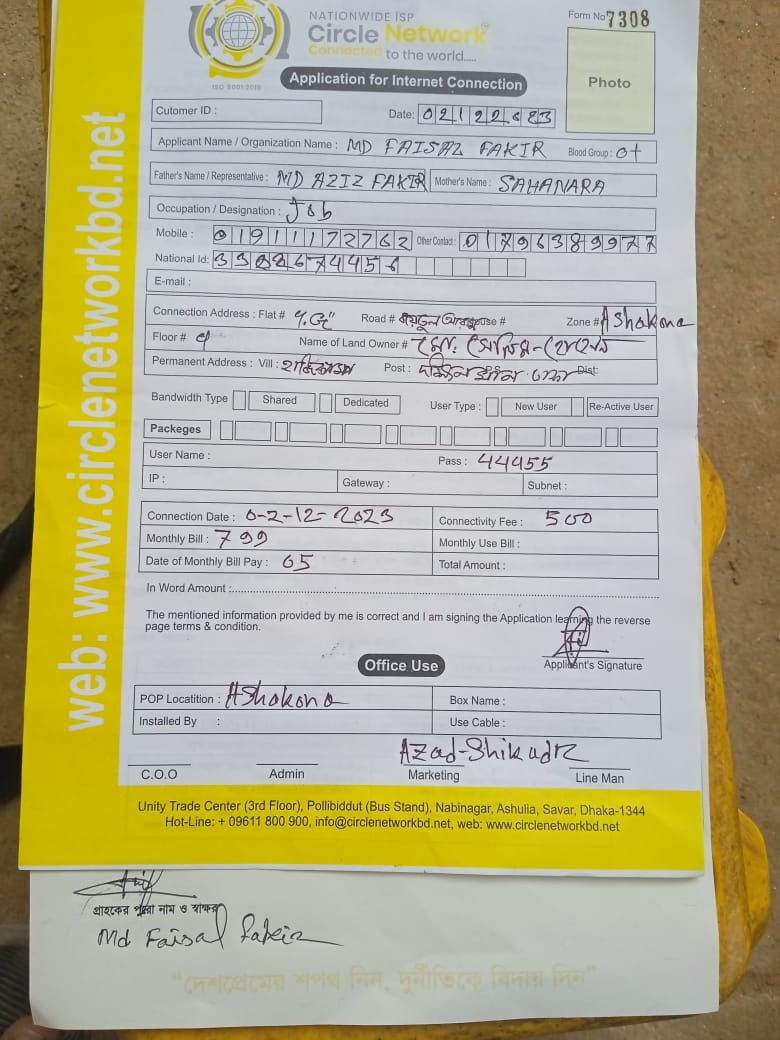 NATIONWIDE ISP
Form No 7308
Circle Network
Connected to the world.....
ISO 9001:2015
Application for Internet Connection
Photo
Cutomer ID :
Date: 02122023
Applicant Name / Organization Name : MD FAISAL FAKIR Blood Group : O+
Father's Name / Representative : MD AZIZ FAKIR Mother's Name : SAHANARA
Occupation / Designation : Job
Mobile : 01911172762 Other Contact : 01796389977
National Id:
E-mail :
Connection Address : Flat # Road # House # Zone # Ashakona
Floor # Name of Land Owner # মো:
Permanent Address : Vill : Post : Dist:
Bandwidth Type Shared Dedicated User Type : New User Re-Active User
Packeges
User Name : Pass : 44455
IP : Gateway : Subnet :
Connection Date : 0-2-12-2023 Connectivity Fee : 500
Monthly Bill : 799 Monthly Use Bill :
Date of Monthly Bill Pay : 05 Total Amount :
In Word Amount :
The mentioned information provided by me is correct and I am signing the Application learning the reverse
page terms & condition.
Applicant's Signature
Office Use
POP Locatition : Ashakona Box Name :
Installed By : Use Cable :
Azad-Shikadr
C.O.O Admin Marketing Line Man
Unity Trade Center (3rd Floor), Pollibiddut (Bus Stand), Nabinagar, Ashulia, Savar, Dhaka-1344
Hot-Line: + 09611 800 900, info@circlenetworkbd.net, web: www.circlenetworkbd.net
web: www.circlenetworkbd.net
গ্রাহকের পুরো নাম ও স্বাক্ষর
Md Faisal Fakir
“দেশপ্রেমের শপথ নিন, দুর্নীতিকে বিদায় দিন”